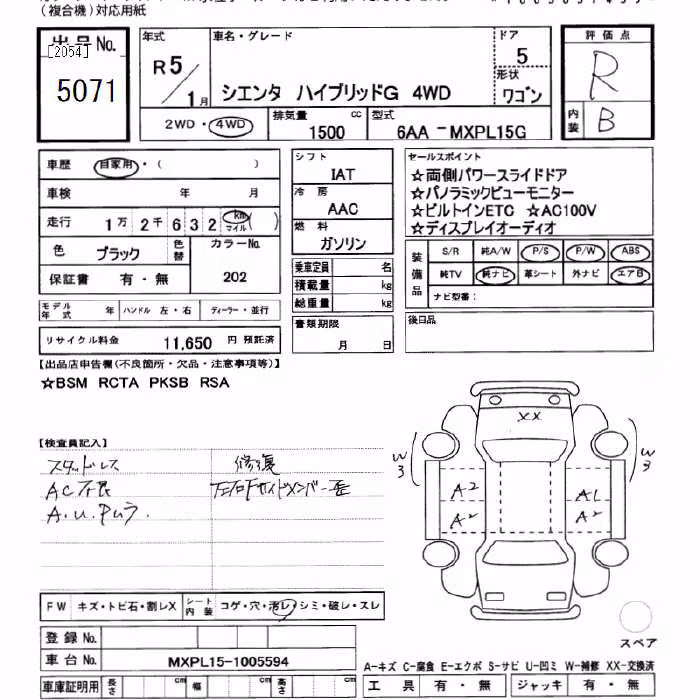 (複合機)対応用紙
出品No.
[2054]
5071
年式
R5/1月
車名・グレード
シエンタ ハイブリッドG 4WD
ドア
5
形状
ワゴン
評価点
R
内装
B
2WD・4WD
排気量
1500 cc
型式
6AA-MXPL15G
車歴 自家用・( )
車検 年 月
走行 1万2千632 km マイル ( )
色 ブラック 色替
カラーNo. 202
保証書 有・無
モデル年式 年
ハンドル 左・右
ディーラー・並行
リサイクル料金 11,650 円 預託済
シフト
IAT
冷房
AAC
燃料
ガソリン
乗車定員 名
積載量 kg
総重量 kg
書類期限
月 日
セールスポイント
☆両側パワースライドドア
☆パノラミックビューモニター
☆ビルトインETC ☆AC100V
☆ディスプレイオーディオ
装備品
S/R 純A/W P/S P/W ABS
純TV 純ナビ 革シート 外ナビ エアB
ナビ型番:
後日品
【出品店申告欄(不良箇所・欠品・注意事項等)】
☆BSM RCTA PKSB RSA
【検査員記入】
スタッドレス
AC不良
A.U.Pムラ.
修復
サイドメンバー歪
XX
W3
W3
A2
A2
A1
A2
FW キズ・トビ石・割レX
シート内装 コゲ・穴・汚レ・シミ・破レ・スレ
登録No.
車台No. MXPL15-1005594
車庫証明用 長さ cm 幅 cm 高さ cm
スペア
A-キズ C-腐食 E-エクボ S-サビ U-凹ミ W-補修 XX-交換済
工具 有・無 ジャッキ 有・無